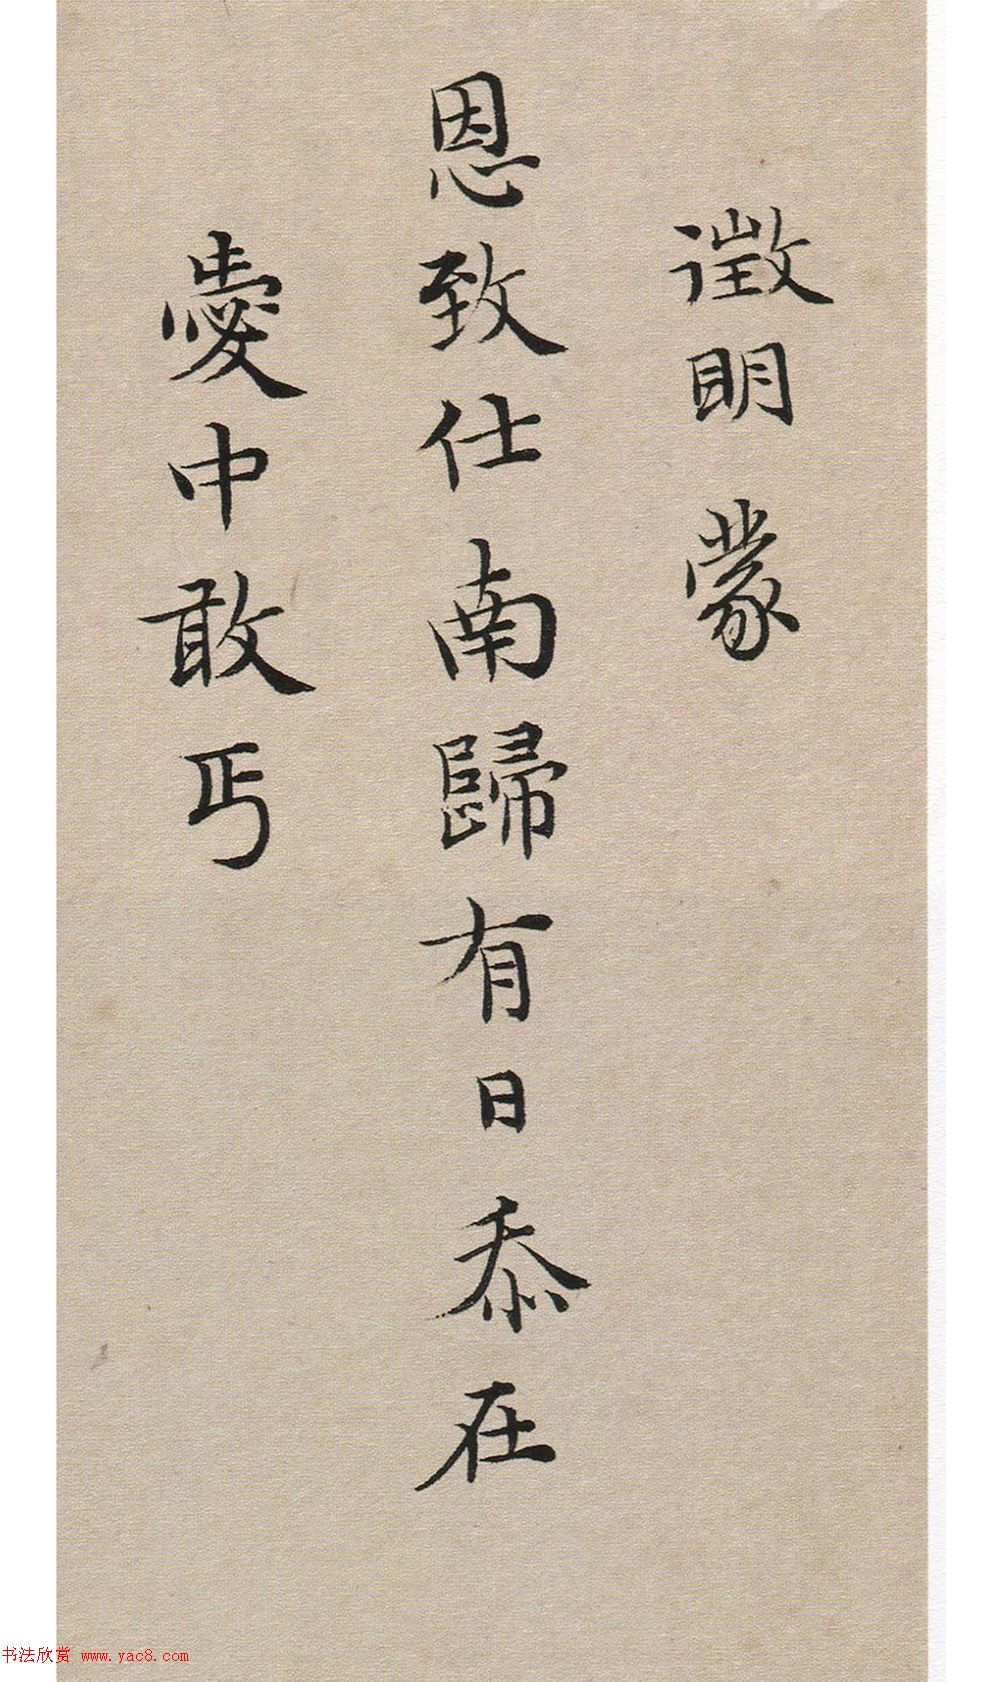 徵明蒙
恩致仕南歸有日忝在
愛中敢丐
书法欣赏 www.yac8.com